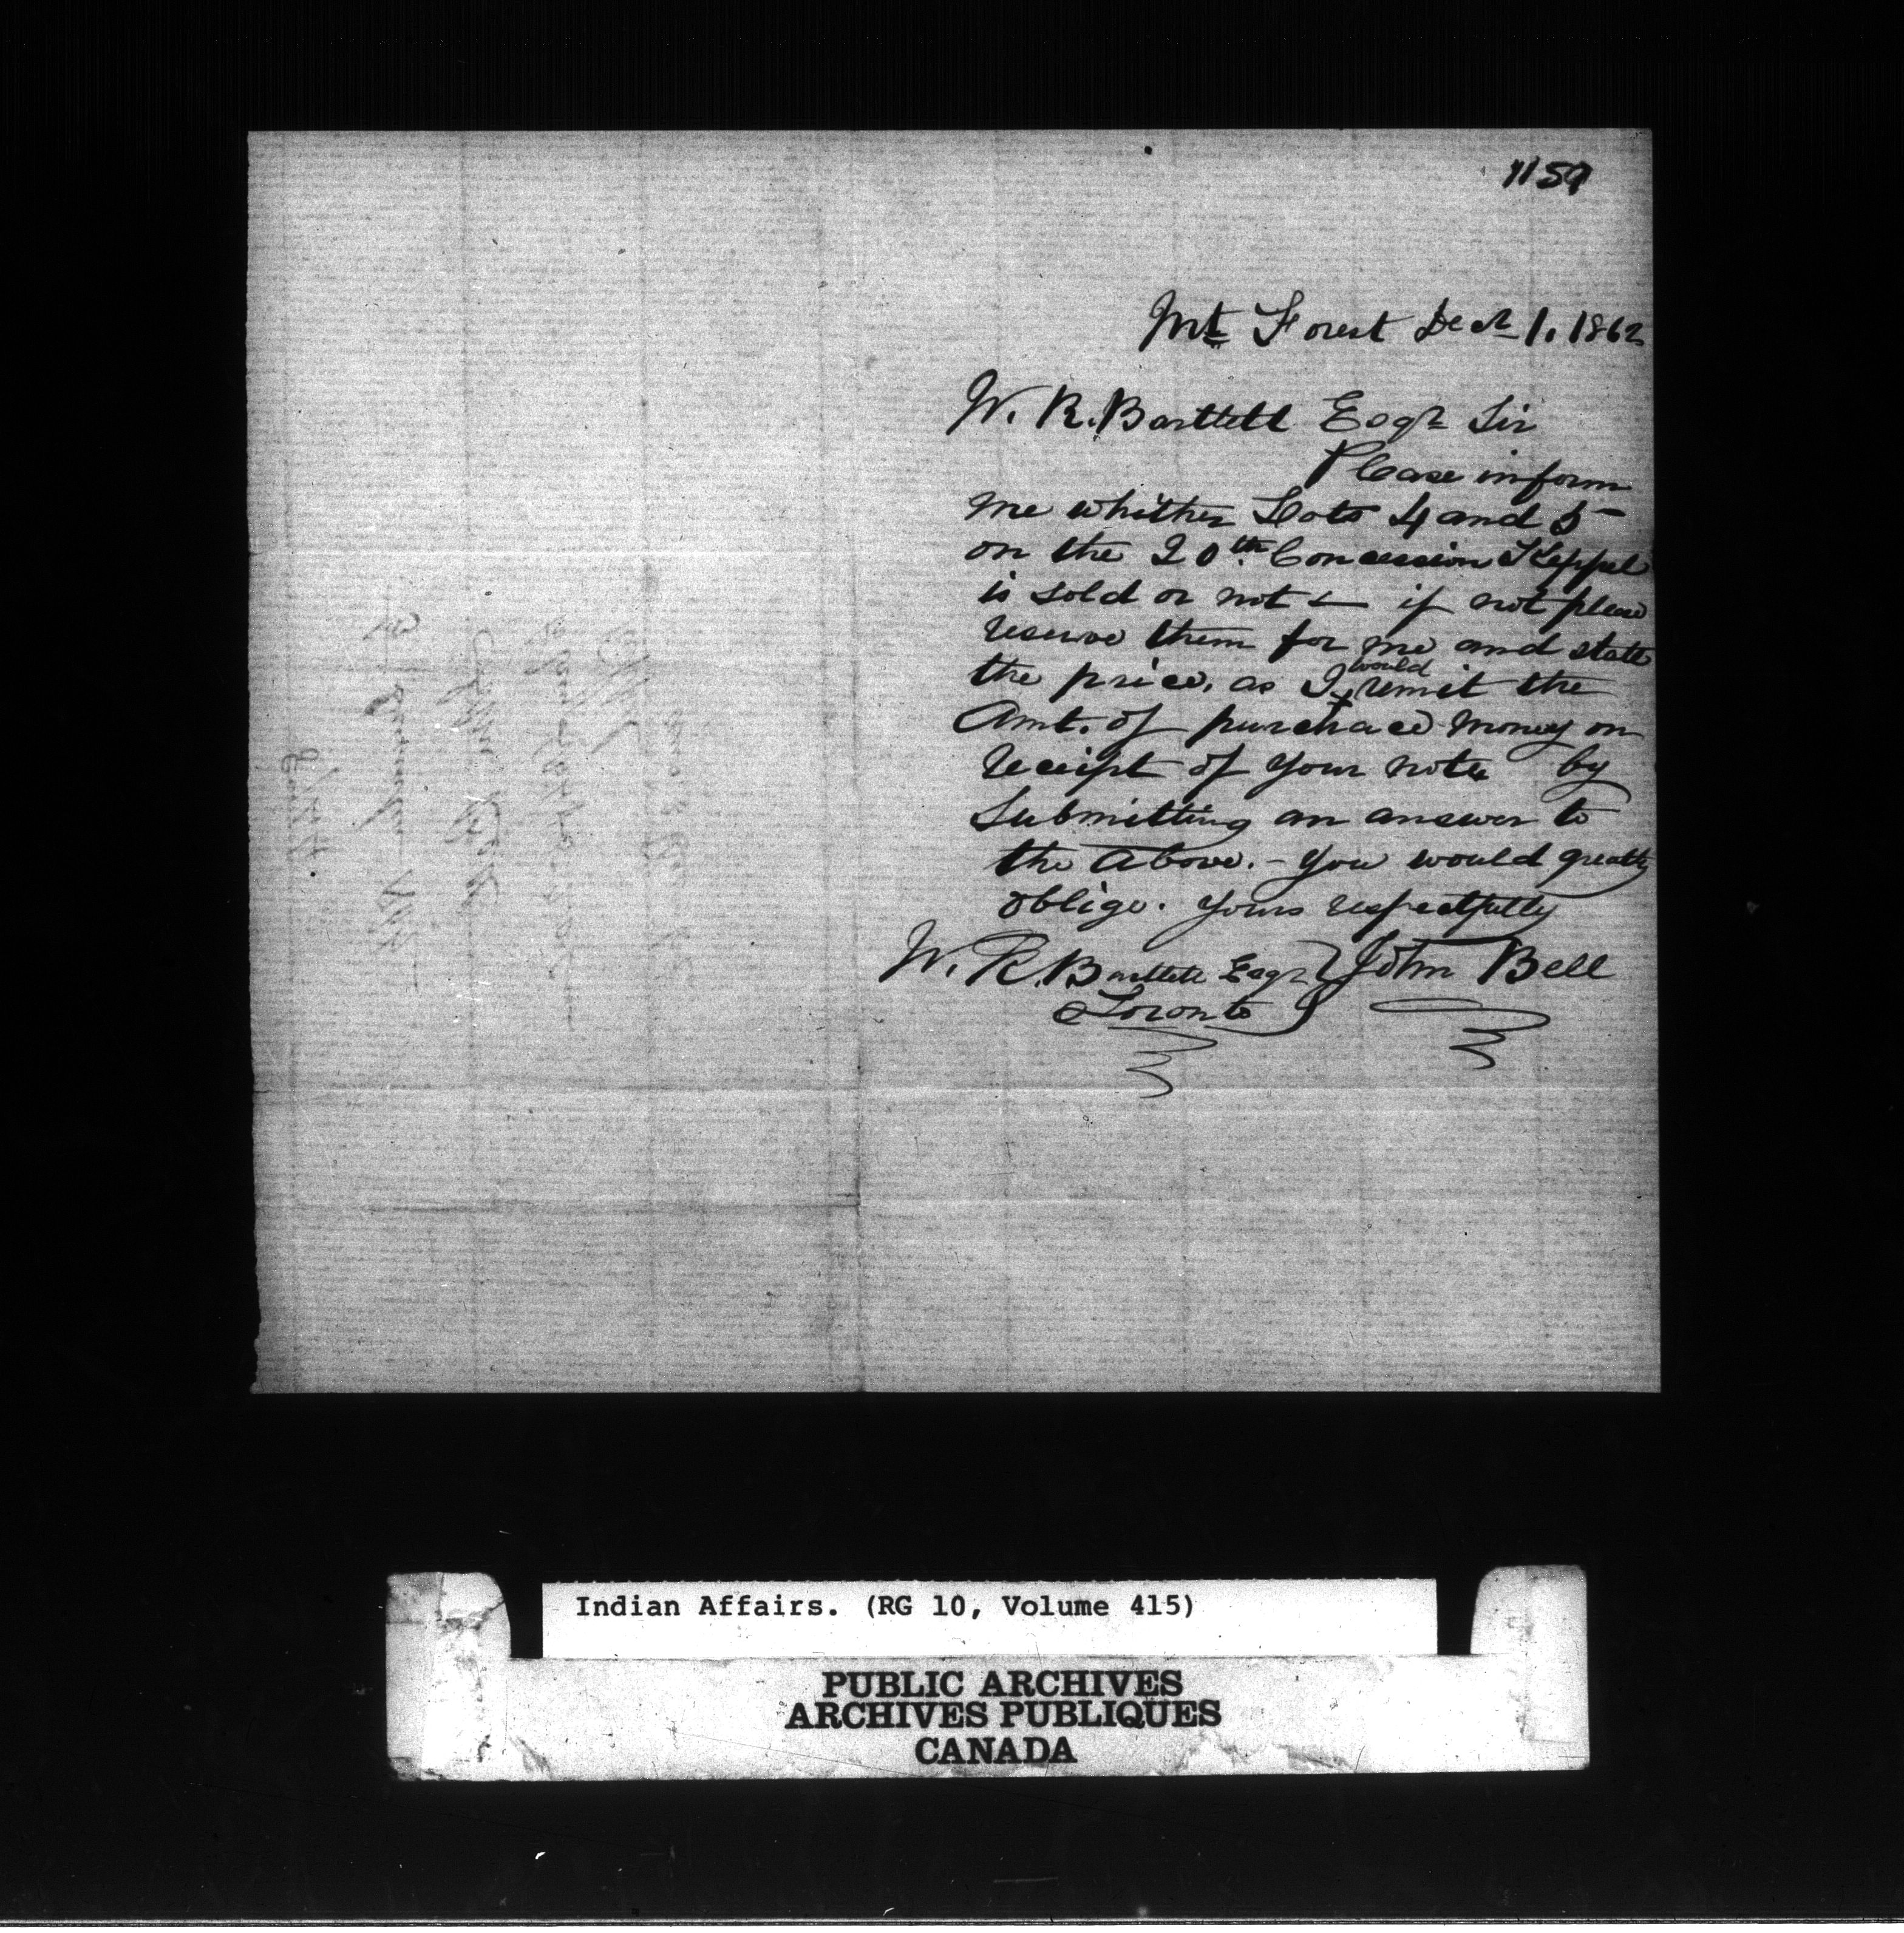 1159
Mt Forest Decr 1. 1862
W. R. Bartlett Esqr Sir
Please inform
me whither Lots 4 and 5
on the 20th Concession Keppel
is sold or not & if not please
reserve them for me and state
the price, as I would remit the
Amt. of purchace money on
receipt of your note by
Submitting an answer to
the Above. - You would greatly
oblige. Yours respectfully
W. R. Bartlett Esqr } John Bell
Toronto
Indian Affairs. (RG 10, Volume 415)
PUBLIC ARCHIVES
ARCHIVES PUBLIQUES
CANADA